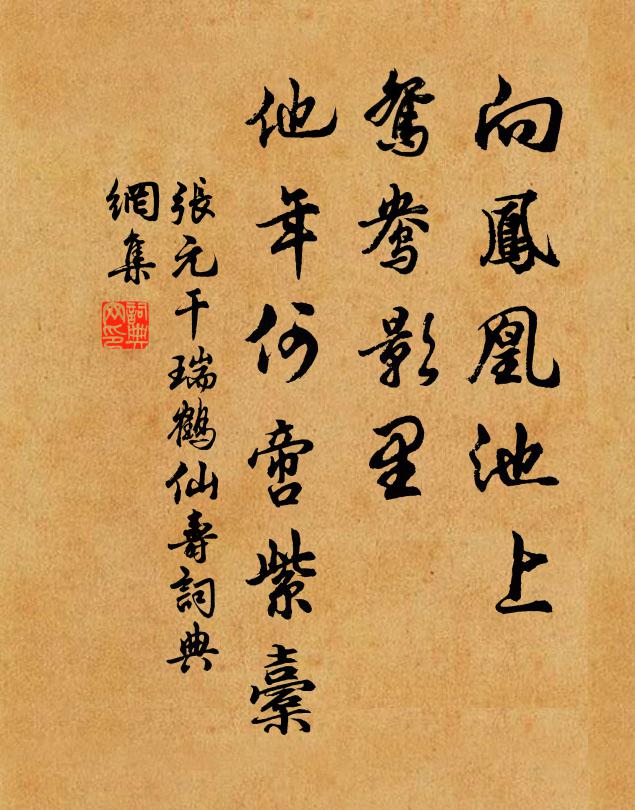 向鳳凰池上
鴛鴦影里
他年何啻紫橐
張元干瑞鶴仙壽詞典
網集
詞典
网印